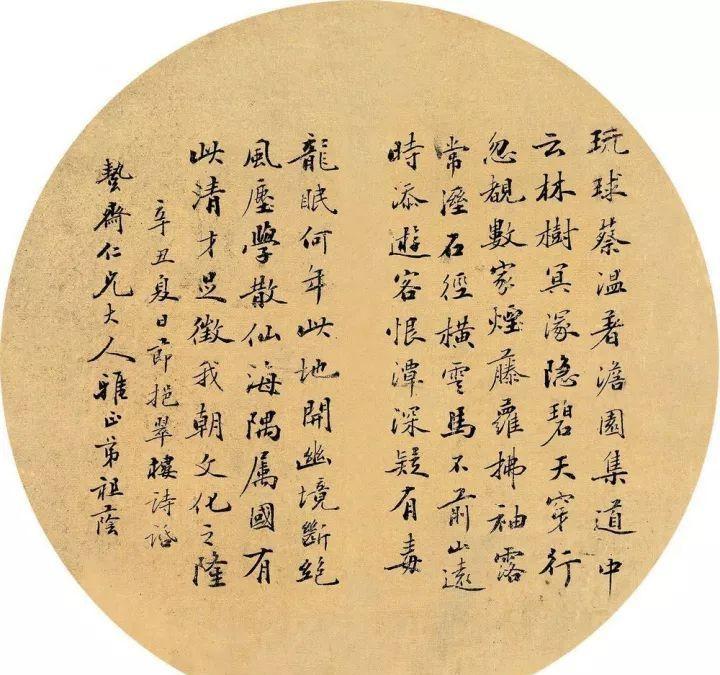 琉球蔡温著澹園集道中
云林樹冥濛隐碧天穿行
忽覩數家煙藤蘿拂袖露
常溼石徑橫雲馬不前山遠
時添遊客恨潭深疑有毒
龍眠何年此地開幽境斷絕
風塵學散仙海隅属國有
此清才足徵我朝文化之隆
辛丑夏日節挹翠樓詩話
藝齋仁兄大人雅正弟祖蔭